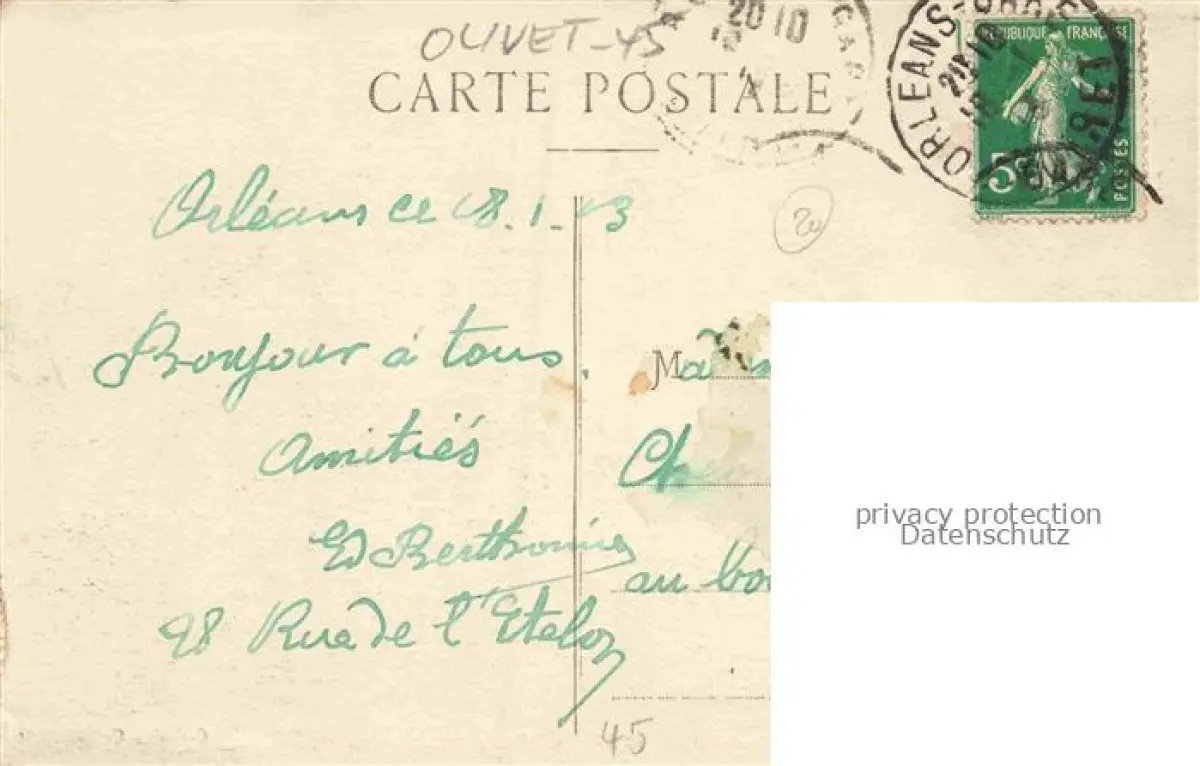 OLIVET-45
CARTE POSTALE
20 10
ORLEANS-
20 10
18
REPUBLIQUE FRANÇAISE
5c
POSTES
Orléans ce 18.1.13
20
Bonjour à tous.
Amitiés
Ed Berthomier
98 Rue de l'Etelon
M
au
45
privacy protection
Datenschutz